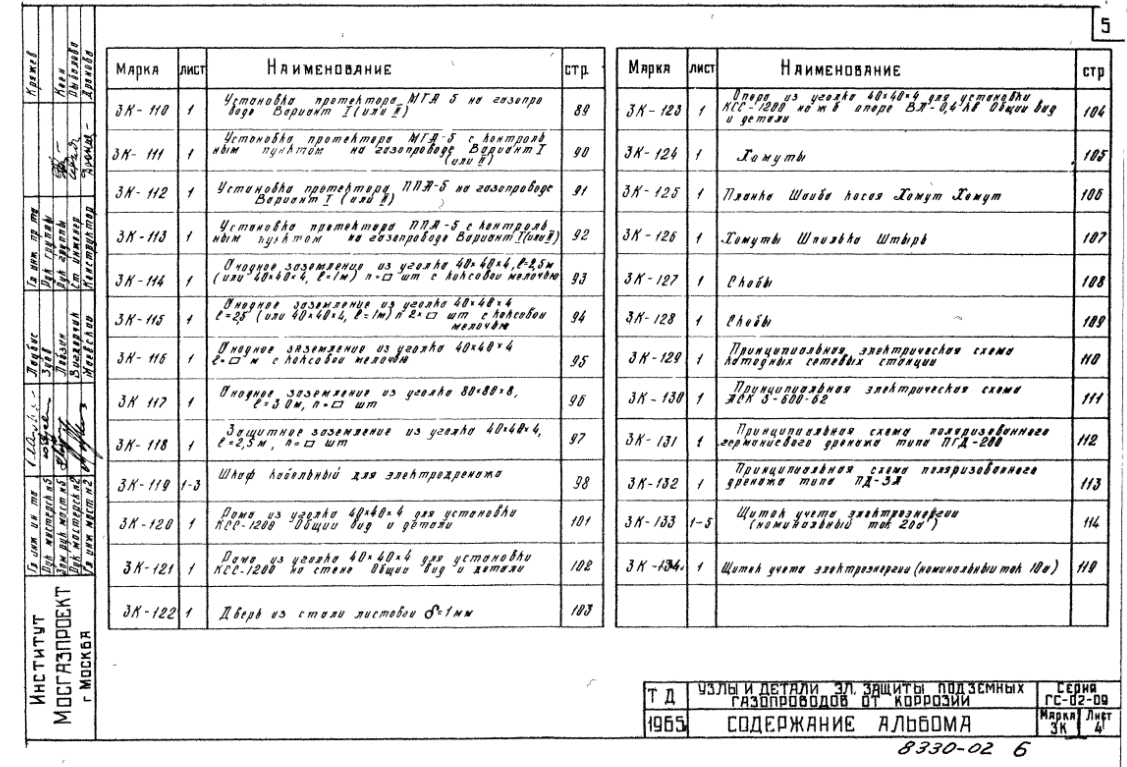 5
Марка лист Наименование стр.
ЗК-110 1 Установка протектора МГА 5 на газопро
воде Вариант I (или II) 89
ЗК-111 1 Установка протектора МГА-5 с контроль
ным пунктом на газопроводе Вариант I
(или II) 90
ЗК-112 1 Установка протектора ППА-5 на газопроводе
Вариант I (или II) 91
ЗК-113 1 Установка протектора ППА-5 с контроль
ным пунктом на газопроводе Вариант I (или II) 92
ЗК-114 1 Анодное заземление из уголка 40×40×4, ℓ=2,5м
(или 40×40×4, ℓ=1м) n=□ шт с коксовой мелочью 93
ЗК-115 1 Анодное заземление из уголка 40×40×4
ℓ=25 (или 40×40×4, ℓ=1м) n 2×□ шт с коксовой
мелочью 94
ЗК-116 1 Анодное заземление из уголка 40×40×4
ℓ=□ м с коксовой мелочью 95
ЗК 117 1 Анодное заземление из уголка 80×80×8,
ℓ=3 0м, n=□ шт 96
ЗК-118 1 Защитное заземление из уголка 40×40×4,
ℓ=2,5м, n=□ шт 97
ЗК-119 1-3 Шкаф кабельный для электродренажа 98
ЗК-120 1 Рама из уголка 40×40×4 для установки
КСС-1200 Общий вид и детали 101
ЗК-121 1 Рама из уголка 40×40×4 для установки
КСС-1200 на стене Общий вид и детали 102
ЗК-122 1 Дверь из стали листовой δ=1мм 103
Марка лист Наименование стр
ЗК-123 1 Опора из уголка 40×40×4 для установки
КСС-1200 на ж б опоре ВЛ-0,4 кв Общий вид
и детали 104
ЗК-124 1 Хомуты 105
ЗК-125 1 Планка Шайба косая Хомут Хомут 106
ЗК-126 1 Хомуты Шпилька Штырь 107
ЗК-127 1 Скобы 108
ЗК-128 1 Скобы 109
ЗК-129 1 Принципиальная электрическая схема
катодных сетевых станции 110
ЗК-130 1 Принципиальная электрическая схема
АСК 3-600-62 111
ЗК-131 1 Принципиальная схема поляризованного
германиевого дренажа типа ПГД-200 112
ЗК-132 1 Принципиальная схема поляризованного
дренажа типа ПД-3А 113
ЗК-133 1-5 Щиток учета электроэнергии
(номинальный ток 20а) 114
ЗК-134 1 Щиток учета электроэнергии (номинальный ток 10а) 119
Институт
Мосгазпроект
г Москва
ТД Узлы и детали эл. защиты подземных
газопроводов от коррозии Серия
ГС-02-09
1965 Содержание альбома Марка
ЗК Лист
4
8330-02 6